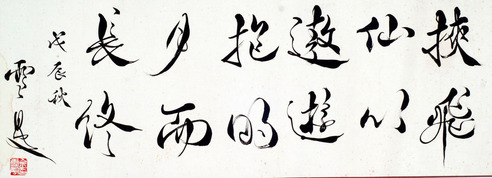 挾飛
仙以
遨遊
抱明
月而
長終
戊辰秋